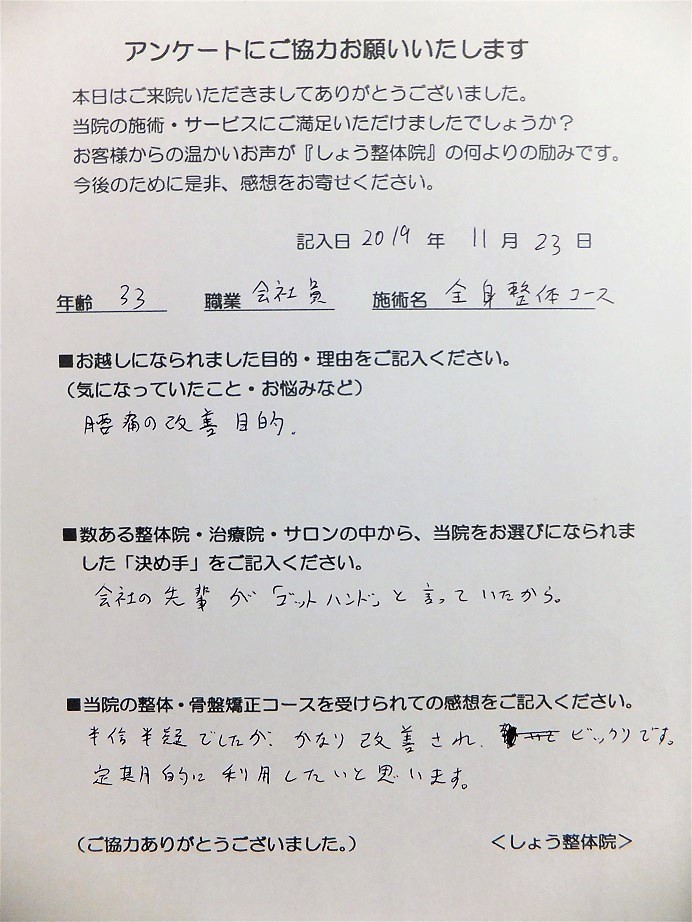 アンケートにご協力お願いいたします
本日はご来院いただきましてありがとうございました。
当院の施術・サービスにご満足いただけましたでしょうか？
お客様からの温かいお声が『しょう整体院』の何よりの励みです。
今後のために是非、感想をお寄せください。
記入日 2019 年 11 月 23 日
年齢 33 職業 会社員 施術名 全身整体コース
■お越しになられました目的・理由をご記入ください。
（気になっていたこと・お悩みなど）
腰痛の改善目的.
■数ある整体院・治療院・サロンの中から、当院をお選びになられま
した「決め手」をご記入ください。
会社の先輩が「ゴットハンド」と言っていたから。
■当院の整体・骨盤矯正コースを受けられての感想をご記入ください。
半信半疑でしたが、かなり改善され、ビックリです。
定期的に利用したいと思います。
（ご協力ありがとうございました。） ＜しょう整体院＞